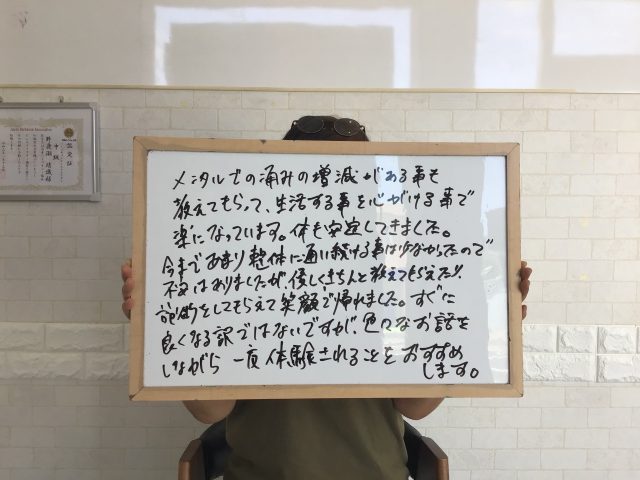 メンタルでの痛みの増減がある事も
教えてもらって、生活する事を心がける事で
楽になっています。体も安定してきました。
今まであまり整体に通い続ける事は少なかったので
不安はありましたが、優しくきちんと教えてもらえたり
説明をしてもらえて笑顔で帰れました。すぐに
良くなる訳ではないですが、色々なお話を
しながら一度体験されることをおすすめ
します。
認定証